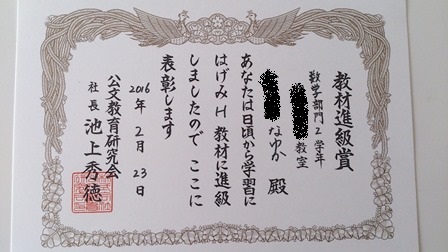 教材進級賞
数学部門2学年
教室
なゆか 殿
あなたは日頃から学習に
はげみH教材に進級
しましたので ここに
表彰します
2016年2月23日
公文教育研究会
社長 池上秀徳